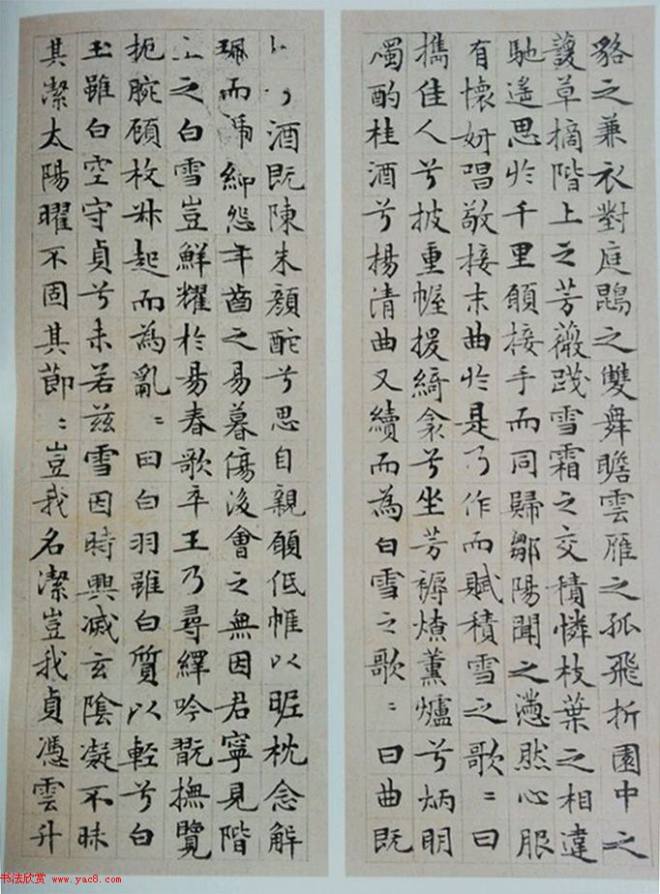 貉之兼衣對庭鵾之雙舞瞻雲雁之孤飛折園中之
萲草摘階上之芳薇踐雪霜之交積憐枝葉之相違
馳遙思於千里願接手而同歸鄒陽聞之懣然心服
有懷妍唱敬接末曲於是乃作而賦積雪之歌〻曰
攜佳人兮披重幄援綺衾兮坐芳褥燎薰爐兮炳明
燭酌桂酒兮揚清曲又續而為白雪之歌〻曰曲既
酒既陳朱顏酡兮思自親願低帷以昵枕念解
珮而褫紳怨年齒之易暮傷後會之無因君寧見階
上之白雪豈鮮耀於昜春歌卒王乃尋繹吟翫撫覽
扼腕顧枚升起而為亂〻曰白羽雖白質以輕兮白
玉雖白空守貞兮未若茲雪因時興滅玄陰凝不昧
其潔太陽曜不固其節〻豈我名潔豈我貞憑雲升
书法欣赏 www.yac8.com